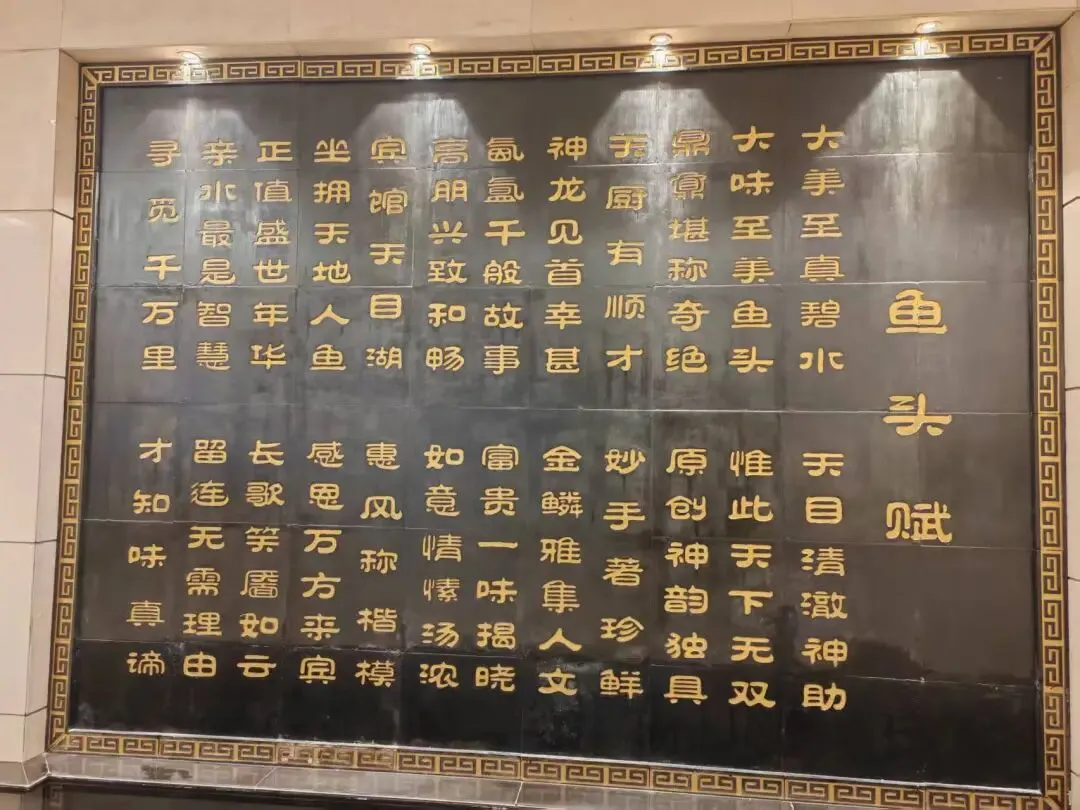 鱼头赋
大美至真碧水 天目清澈神助
大味至美鱼头 惟此天下无双
鼎鼐堪称奇绝 原创神韵独具
天厨有顺才 妙手著珍鲜
神龙见首幸甚 金鳞雅集人文
氤氲千般故事 富贵一味揭晓
高朋兴致和畅 如意情愫汤浓
宾馆天目湖 惠风称楷模
坐拥天地人鱼 感恩万方来宾
正值盛世年华 长歌笑靥如云
亲水最是智慧 留连无需理由
寻觅千万里 才知味真谛